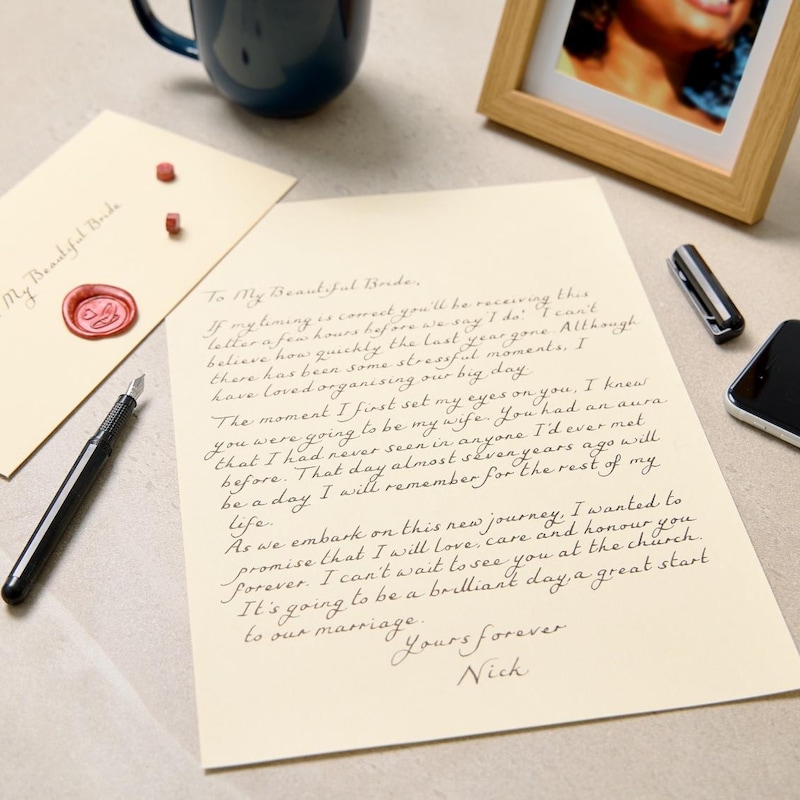 My Beautiful Bride
To My Beautiful Bride,
If my timing is correct you'll be receiving this
letter a few hours before we say 'I do'. I can't
believe how quickly the last year gone. Although
there has been some stressful moments, I
have loved organising our big day
The moment I first set my eyes on you, I knew
you were going to be my wife. You had an aura
that I had never seen in anyone I'd ever met
before. That day almost seven years ago will
be a day I will remember for the rest of my
life.
As we embark on this new journey, I wanted to
promise that I will love, care and honour you
forever. I can't wait to see you at the church.
It's going to be a brilliant day, a great start
to our marriage.
Yours forever
Nick